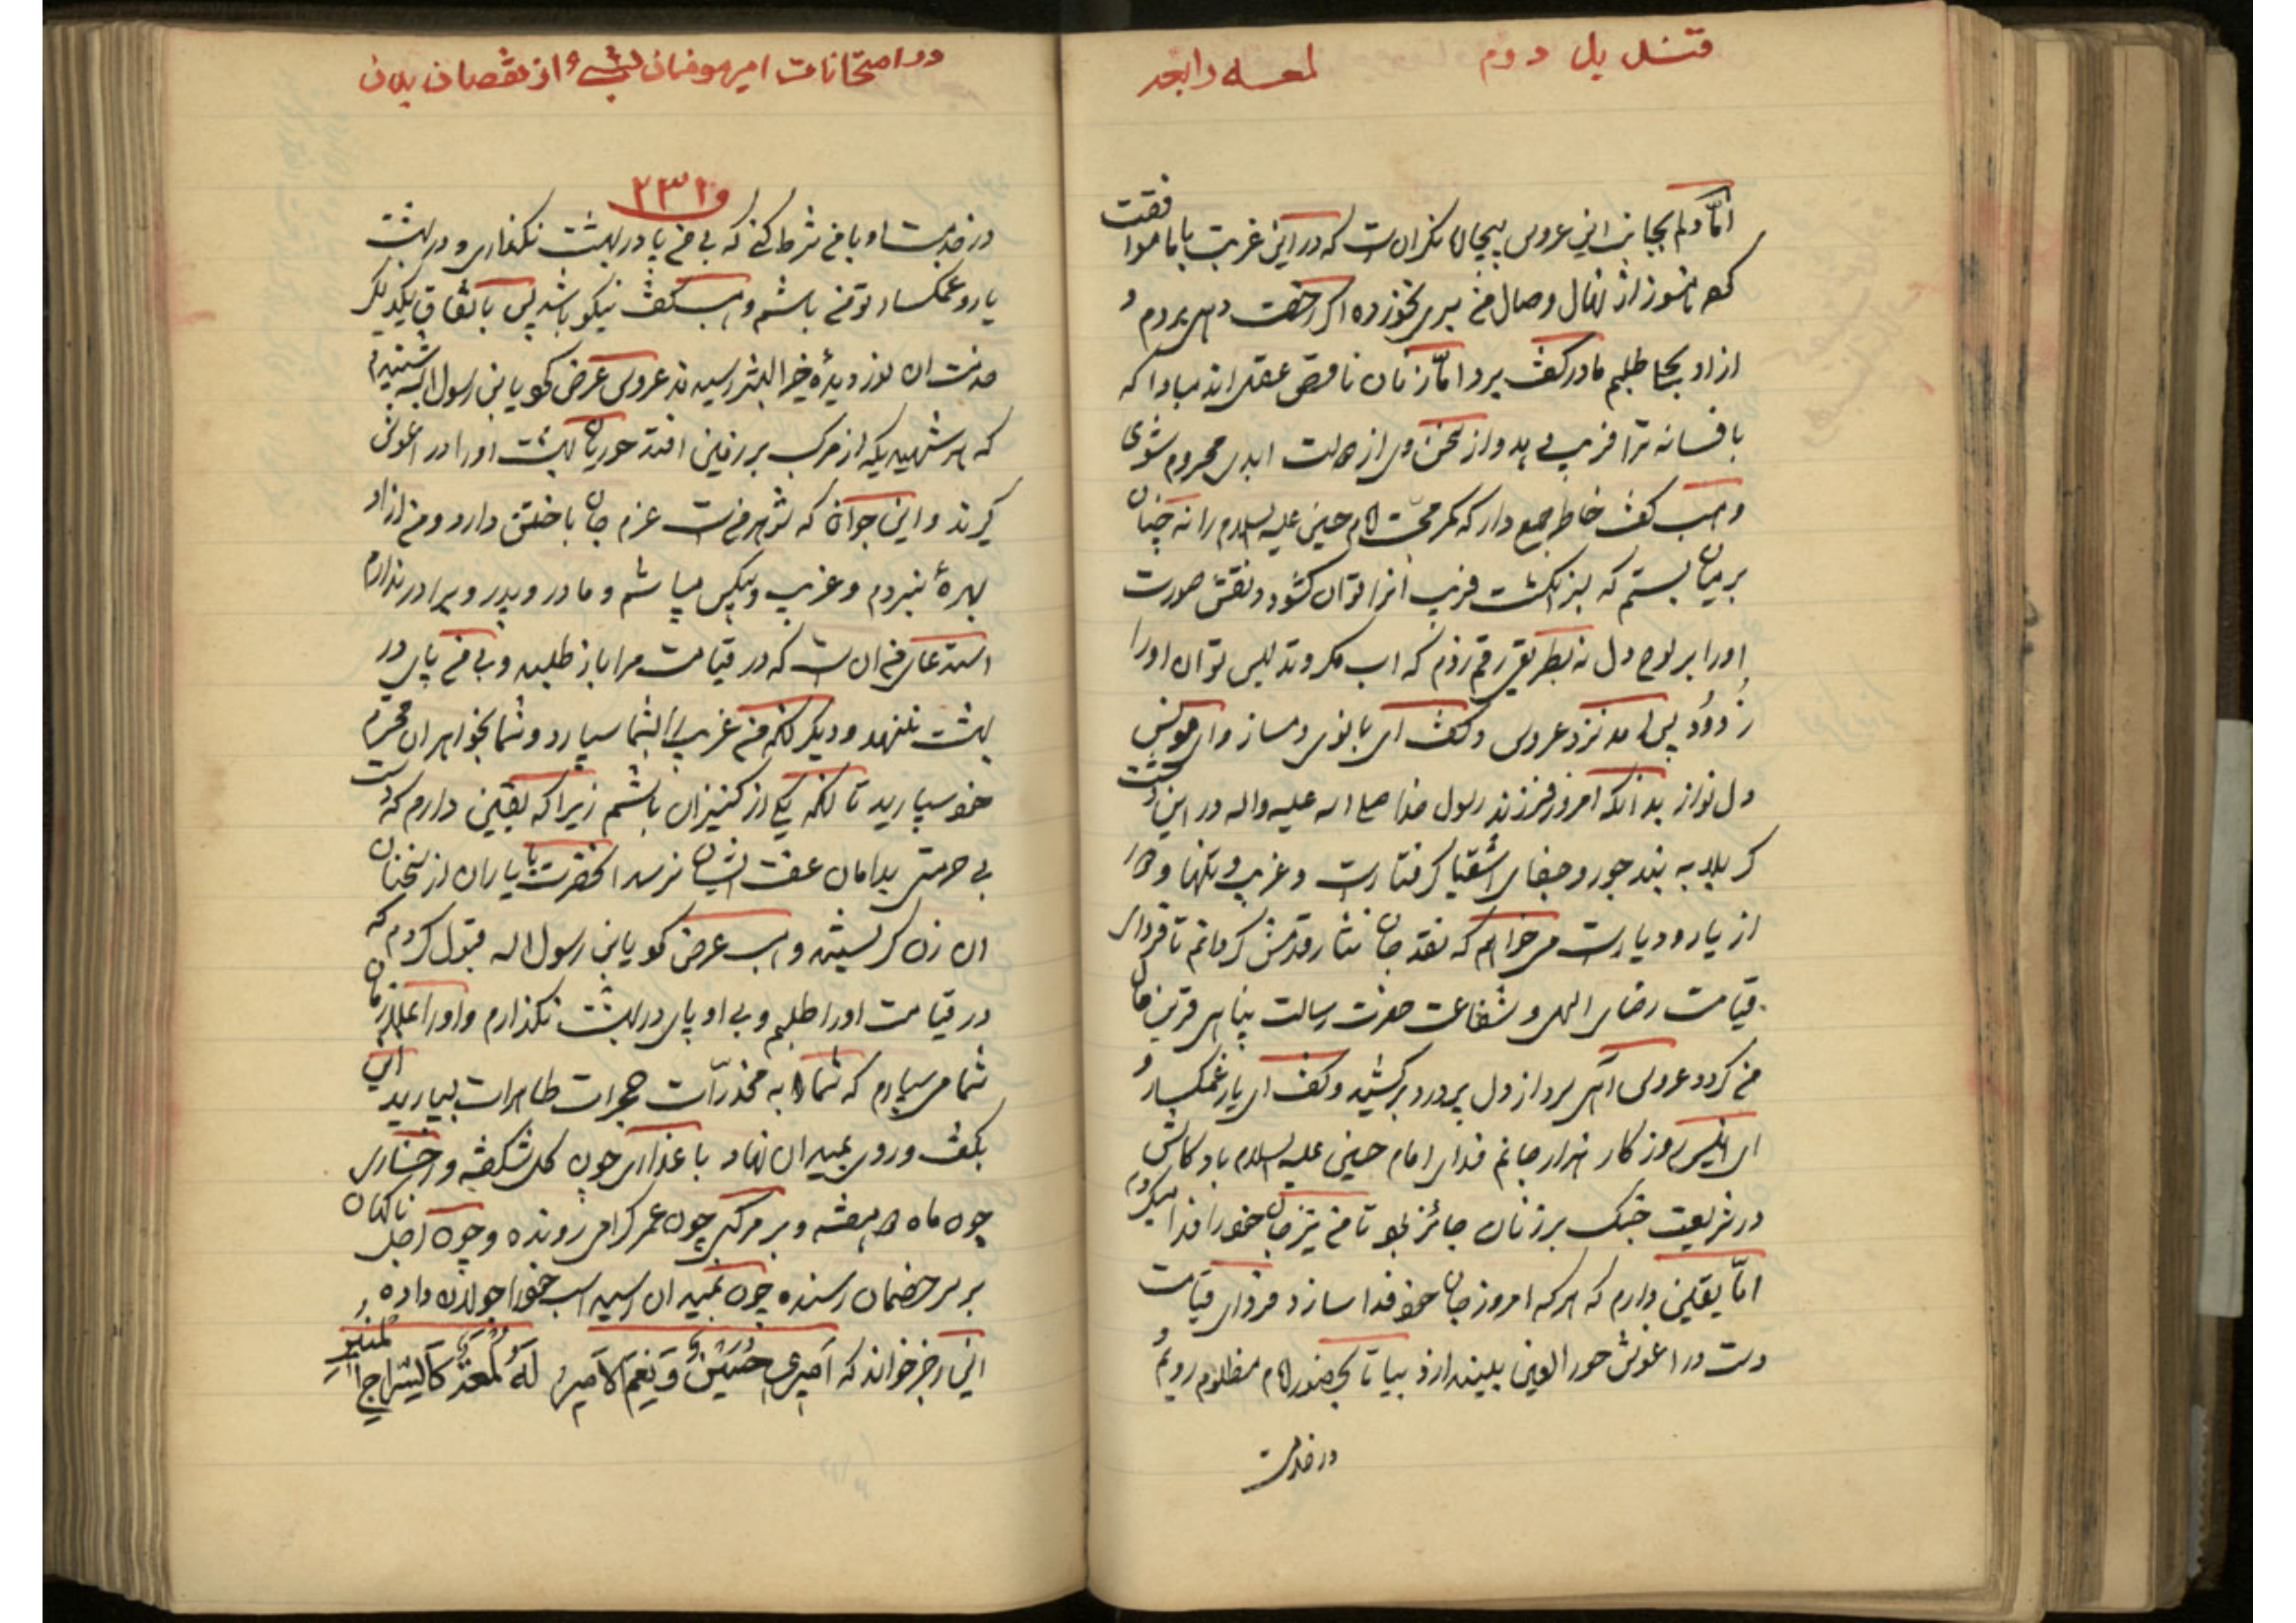 قندیل دوم
لمعه رابعه
امّا دلم بجانب این عروس بیچاره نگران است که در این غربت با ما موافقت
کرده هنوز از نهال وصال من بری نخورده اگر رخصت دهی بروم و
از او بحلی طلبم مادر گفت برو امّا زنان ناقص عقل اند مبادا که
بافسانه ترا فریب دهد و از سخن وی از دولت ابدی محروم شوی
وهب گفت خاطر جمع دار که کمر محبّت امام حسین علیه السلام را نه چنان
بر میان بستم که بسرانگشت فریب آنرا توان گشود و نقش صورت
او را بر لوح دل نه بطریقی رقم زدم که آب مکر و تدلیس توان او را
زُدود پس آمد نزد عروس و گفت ای بانوی دمساز و ای مونس
دل نواز بدانکه امروز فرزند رسول خدا صلی الله علیه واله در این دشت
کربلا به بند جور و جفای اشقیا گرفتار است و غریب و تنها و دور
از یار و دیار است می خواهم که نقد جان نثار قدمش گردانم تا فردای
قیامت رضای الهی و شفاعت حضرت رسالت پناهی قرین حال
من گردد عروس آهی سرد از دل پر درد برکشید و گفت ای یار غمگسار و
ای انیس روزگار هزار جانم فدای امام حسین علیه السلام باد کاش
در شریعت جنگ بر زنان جائز بود تا من نیز جان خود را فدا میکردم
امّا یقین دارم که هر که امروز جان خود فدا سازد فردای قیامت
دست در آغوش حور العین بیندازد بیا تا بحضور امام مظلوم رویم و
در خدمت
در امتحانات امیرمومنان از نقصان بدن
و ۲۳۱
در خدمت او با من شرط کن که بی من پا در بهشت نگذاری و در بهشت
یار و غمگسار تو من باشم وهب گفت نیکو باشد پس باتفاق یکدیگر
خدمت ان نور دیدۀ خیر البشر رسیدند عروس عرض کرد یابن رسول الله شنیدم
که هر شهیدیکه از مرکب بر زمین افتد حوریان بهشت او را در آغوش
گیرند و این جوان که شوهر من است عزم جان باختن دارد و من از او
بهرۀ نبردم و غریب و بیکس میباشم و مادر و پدر و برادر ندارم
استدعای من ان است که در قیامت مرا باز طلبد و بی من پای در
بهشت ننهد و دیگر انکه من غریب را بشما سپارد و شما بخواهران محترم
خود سپارید تا انکه یکی از کنیزان باشم زیرا که یقین دارم که دست
بی حرمتی بدامان عفت ایشان نرسد انحضرت با یاران از سخنان
ان زن گریستند وهب عرض کرد یابن رسول اله قبول کردم که
در قیامت او را طلبم و بی او پای در بهشت نگذارم و او را
شما می سپارم که شما او را به مخدّرات حجرات طاهرات بسپارید این
بگفت و روی بمیدان نهاد با عذاری چون گل شکفته و رخساری
چون ماه دو هفته و بر مرکبی چون عمر گرامی رونده و چون اجل ناگهان
بر سر خصمان رسنده چون بمیدان رسید اسب خود را جولان داده و
این رجز خواند که اَمیری حُسَیْنٌ وَ نِعْمَ الاَمیرُ لَهُ لُمْعَةٌ کَالسِّراجِ المُنیرِ